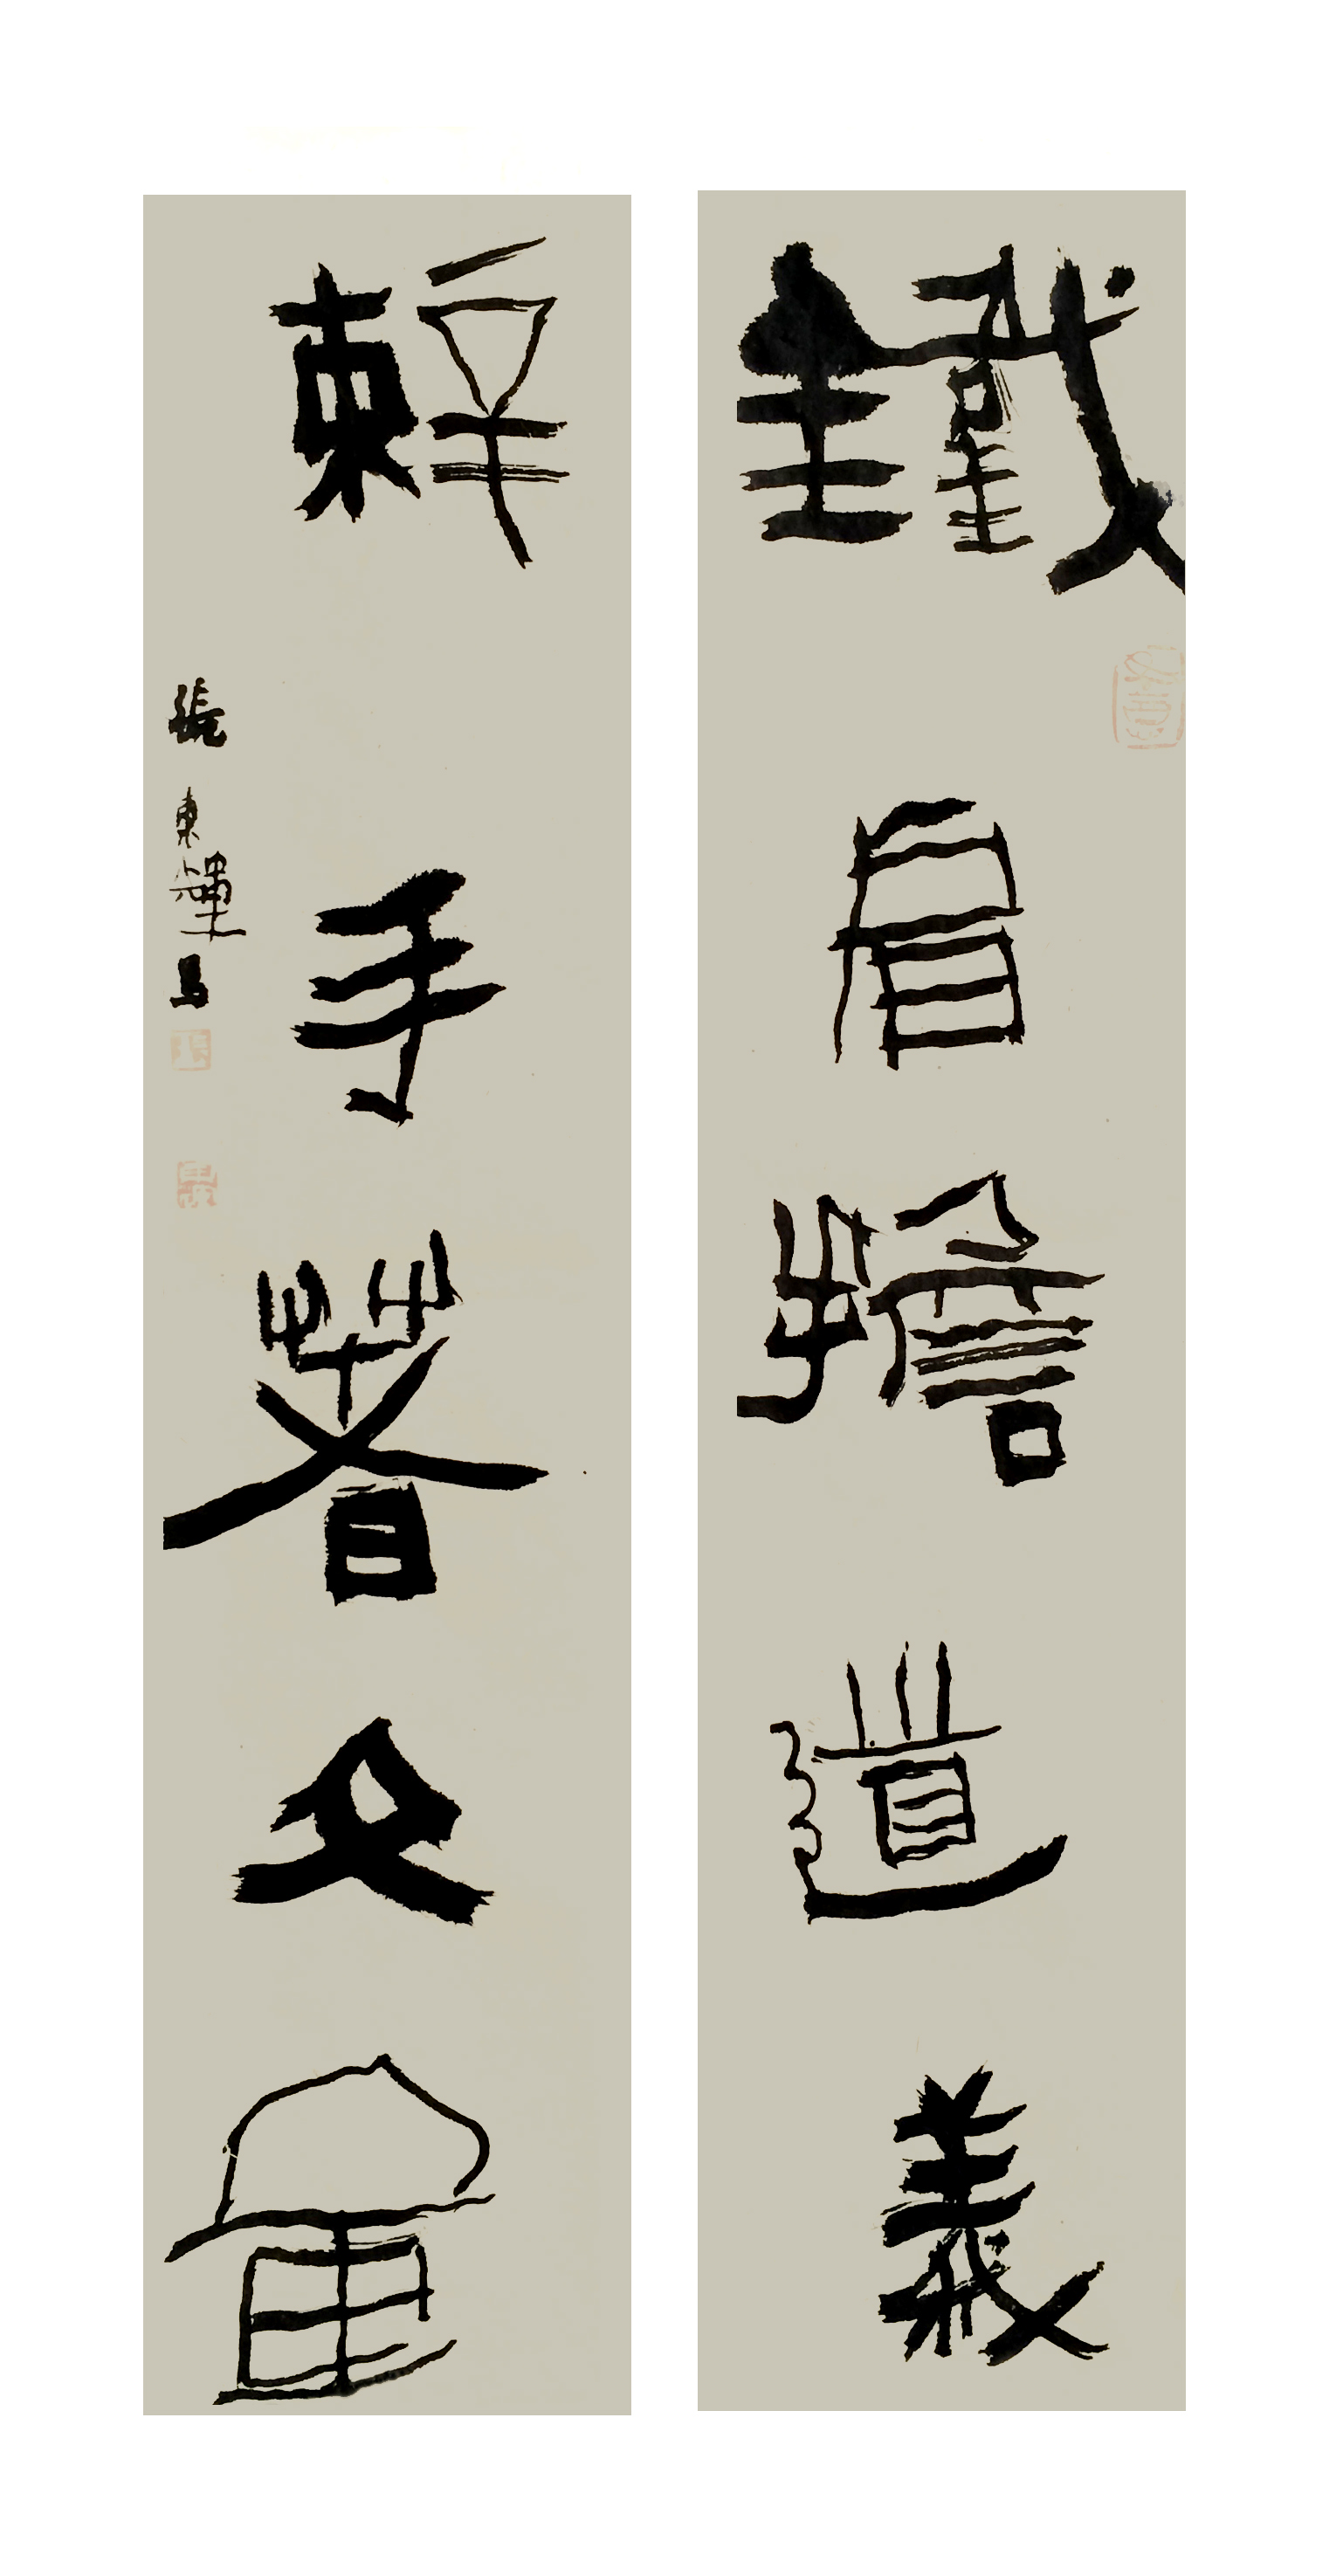 鐵肩擔道義
辣手著文章
張東輝